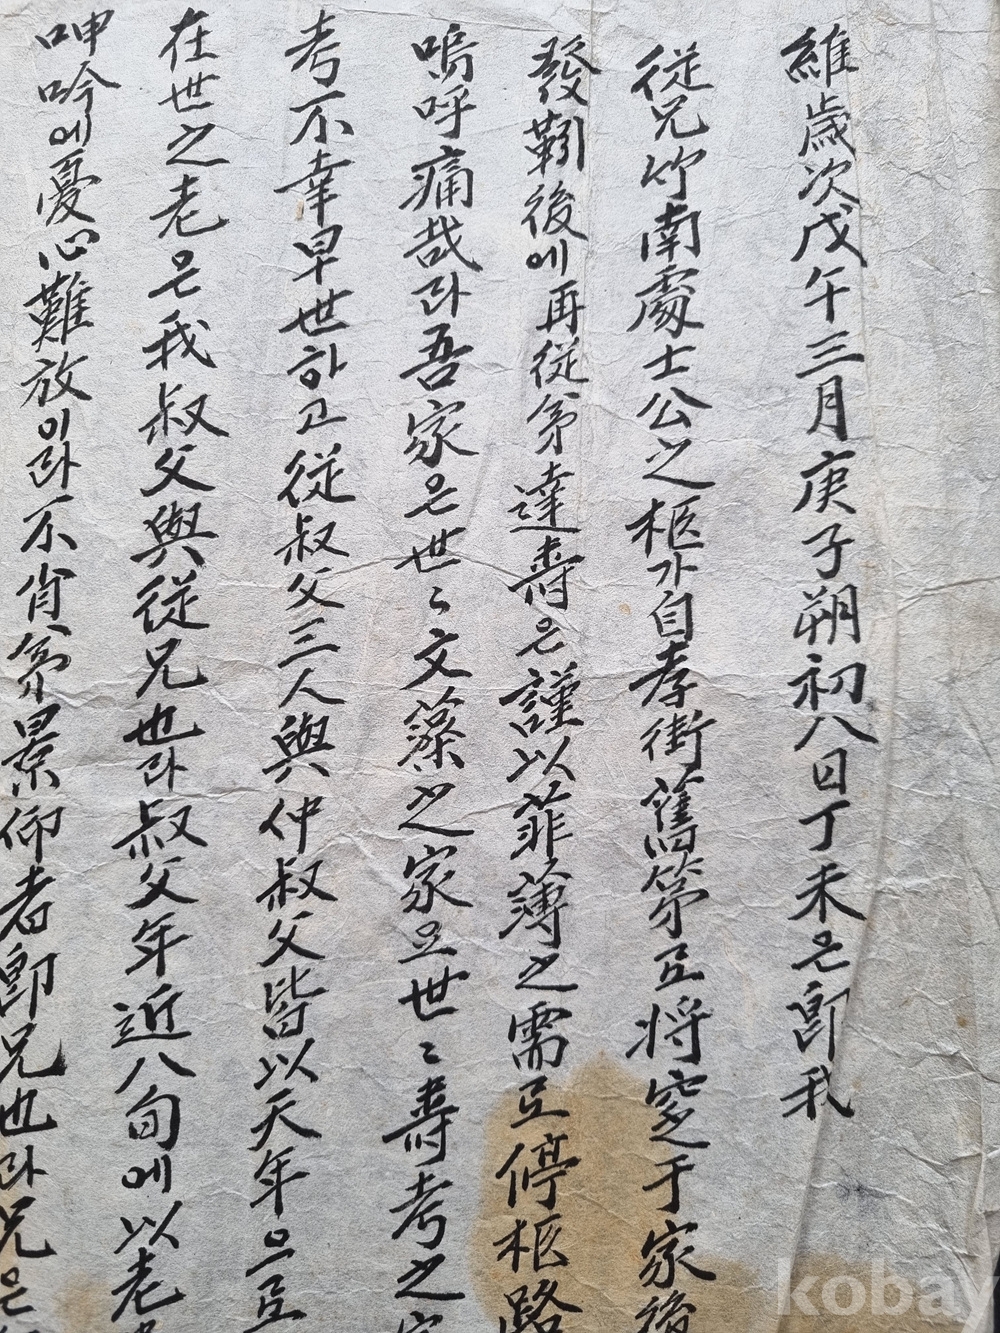 維歲次戊午三月庚子朔初八日丁未은卽我
從兄竹南處士公之柩가自孝街舊第로將窆于家後
發靷後에再從弟達壽은謹以菲薄之需로停柩路
嗚呼痛哉라吾家은世〻文藻之家요世〻壽考之
考不幸早世하고從叔父三人與仲叔父皆以天年으로
在世之老은我叔父與從兄也라叔父年近八旬에以老
呻吟에憂心難放이라不肖弟景仰者卽兄也라兄은
kobay